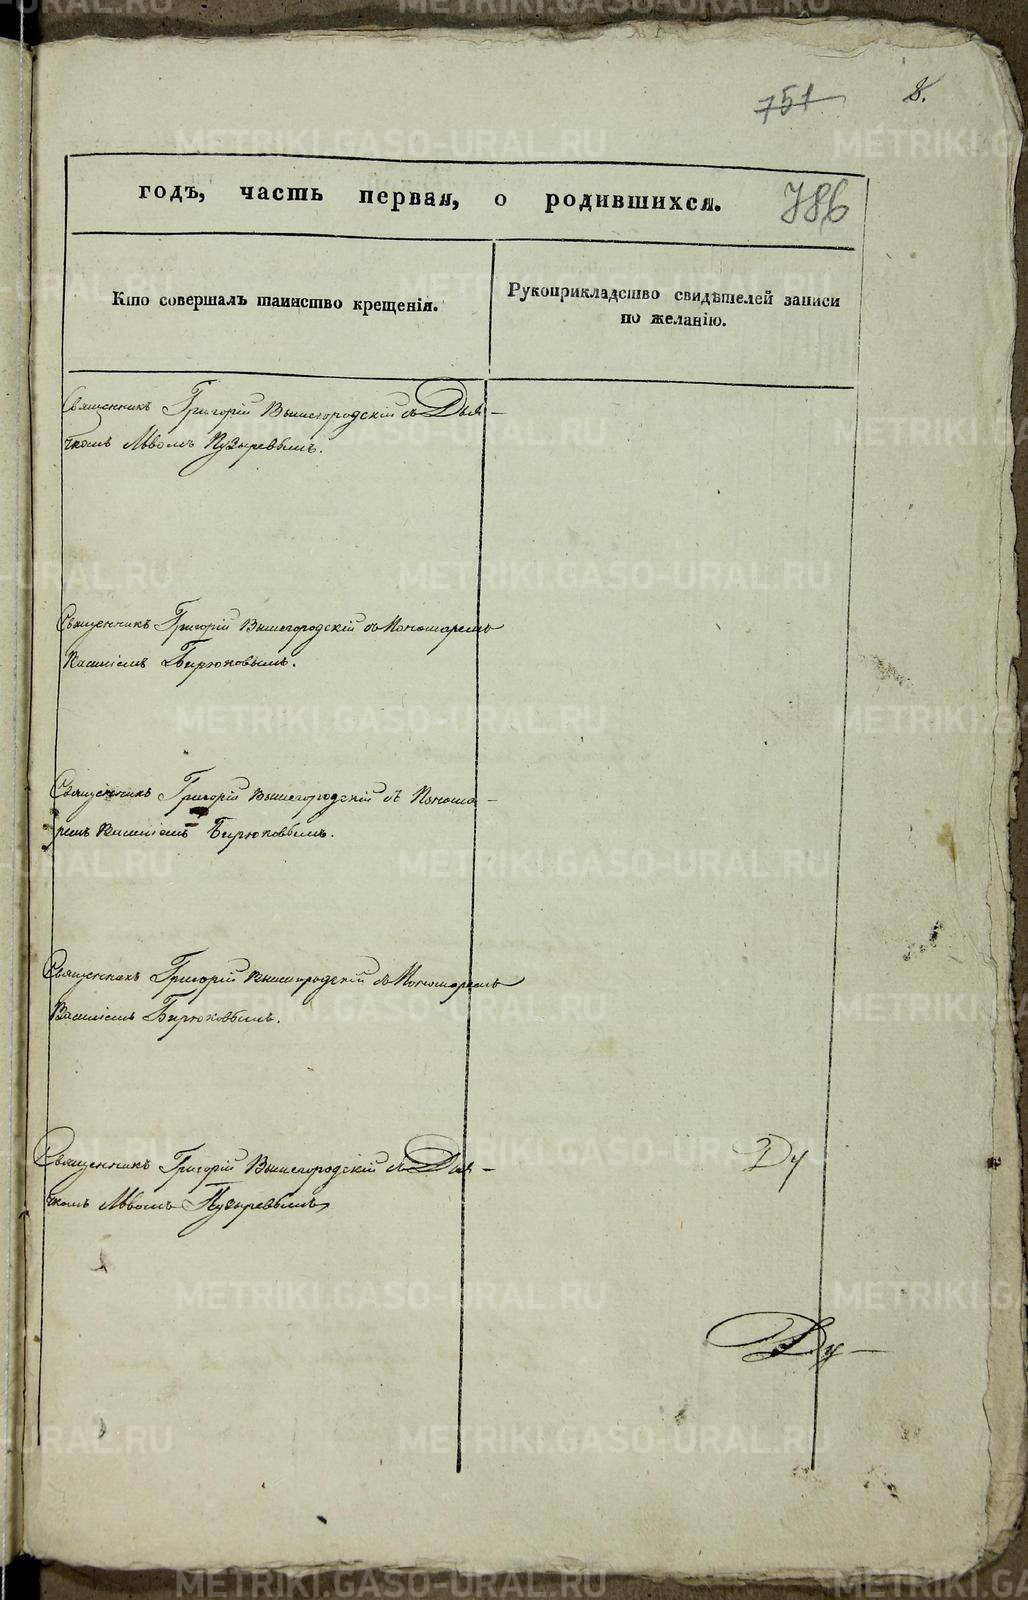 751
8.
годъ, часть первая, о родившихся.
786
Кто совершалъ таинство крещенія.
Рукоприкладство свидѣтелей записи
по желанію.
Священникъ Григорій Вышегородскій съ Дьяч-
комъ Львомъ Пузыревымъ.
Священникъ Григорій Вышегородскій съ Пономаремъ
Василіемъ Бирюковымъ.
Священникъ Григорій Вышегородскій съ Понома-
ремъ Василіемъ Бирюковымъ.
Священникъ Григорій Вышегородскій съ Пономаремъ
Василіемъ Бирюковымъ.
Священникъ Григорій Вышегородскій съ Дья-
чкомъ Львомъ Пузыревымъ
Ду
Ду-
METRIKI.GASO-URAL.RU